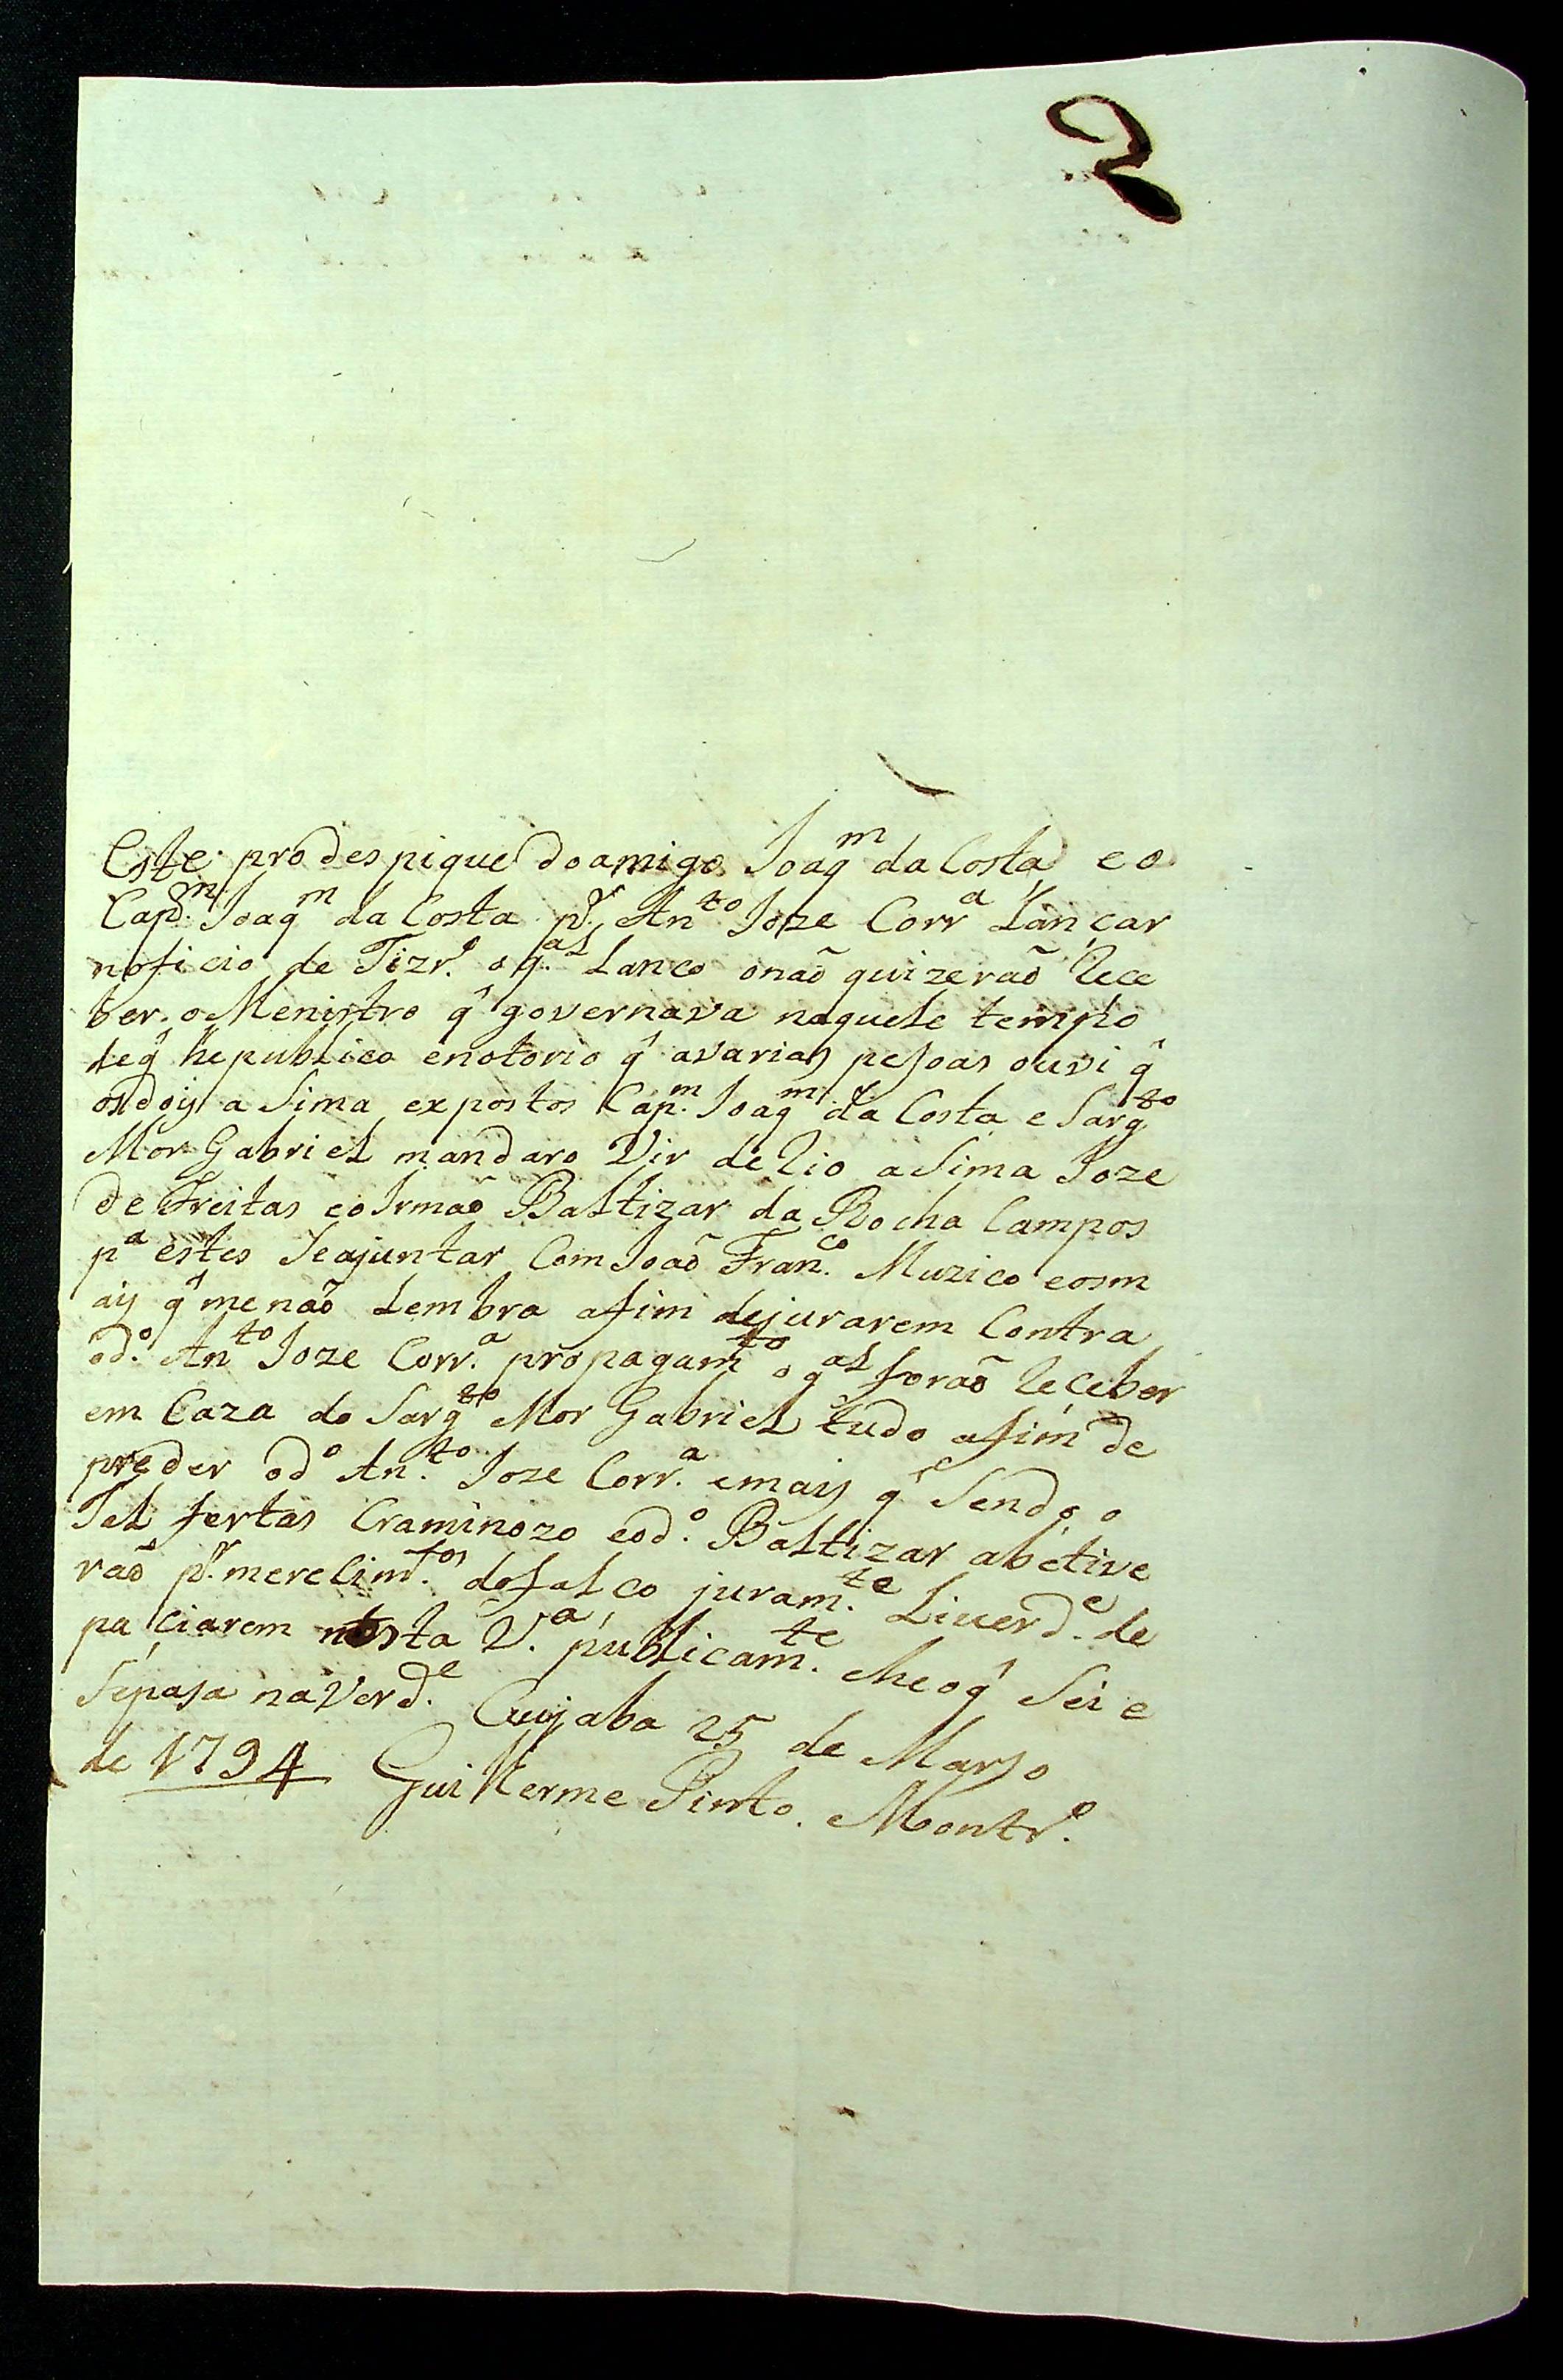 2
Este pro despique do amigo Joaqm da Costa e o
Capm. Joaqm da Costa pr. Anto Joze Corra Lançar
noficio de Tizro. o qal Lanco onaõ quizeraõ Rece
ber. o Menistro q̃ governava naquele tempo
deq̃ hepublico enotorio q̃ avarias pesoas ouvi q̃
osdoij a Sima expostos Capm. Joaqm da Costa e Sargto
Mor Gabriel mandaro Vir de Rio a Sima Joze
de Freitas eo Irmaõ Baltizar da Rocha Campos
pa estes Seajuntar Com Joaõ Franco. Muzico eosm
aij q̃ menaõ Lembra afim dejurarem Contra
odo. Anto Joze Corra. propagamto o qal foraõ Receber
em Caza do Sargto Mor Gabriel tudo afim de
preder odo Anto. Joze Corra. emaij q̃ Sendo o
Tal fertas Craminozo eodo. Baltizar abetive
raõ pr. merecimtos. dofalco juramte. Liverde. de
paciarem nesta Va. publicamte. heoq̃ Sei e
Sepasa naverde. Cuijaba 25 de Marso
de 1794 Guilherme Pinto. Montro.